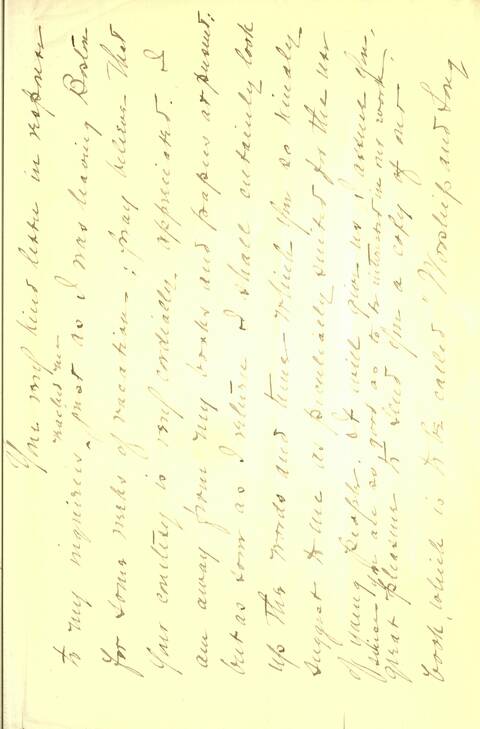 Your very kind letter in response
reached me
to my inquiries, just as I was leaving Boston
for some weeks of vacation; pray believe that
your courtesy is very cordially appreciated. I
am away from my books and papers at present;
but as soon as I return I shall certainly look
up the words and tune which you so kindly
suggest to me as peculiarly suited for the use
of young people. It will give us, I assure you,
since you are so good as to be interested in our work,
great pleasure to send you a copy of our
book, which is to be called "Worship and Song